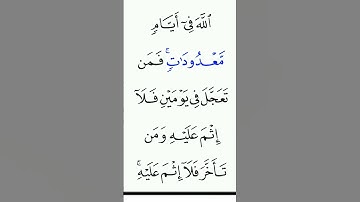 ٱللَّهَ فِىٓ أَيَّامٍ
مَّعْدُودَٰتٍۢ ۚ فَمَن
تَعَجَّلَ فِى يَوْمَيْنِ فَلَآ
إِثْمَ عَلَيْهِ وَمَن
تَأَخَّرَ فَلَآ إِثْمَ عَلَيْهِ ۚ